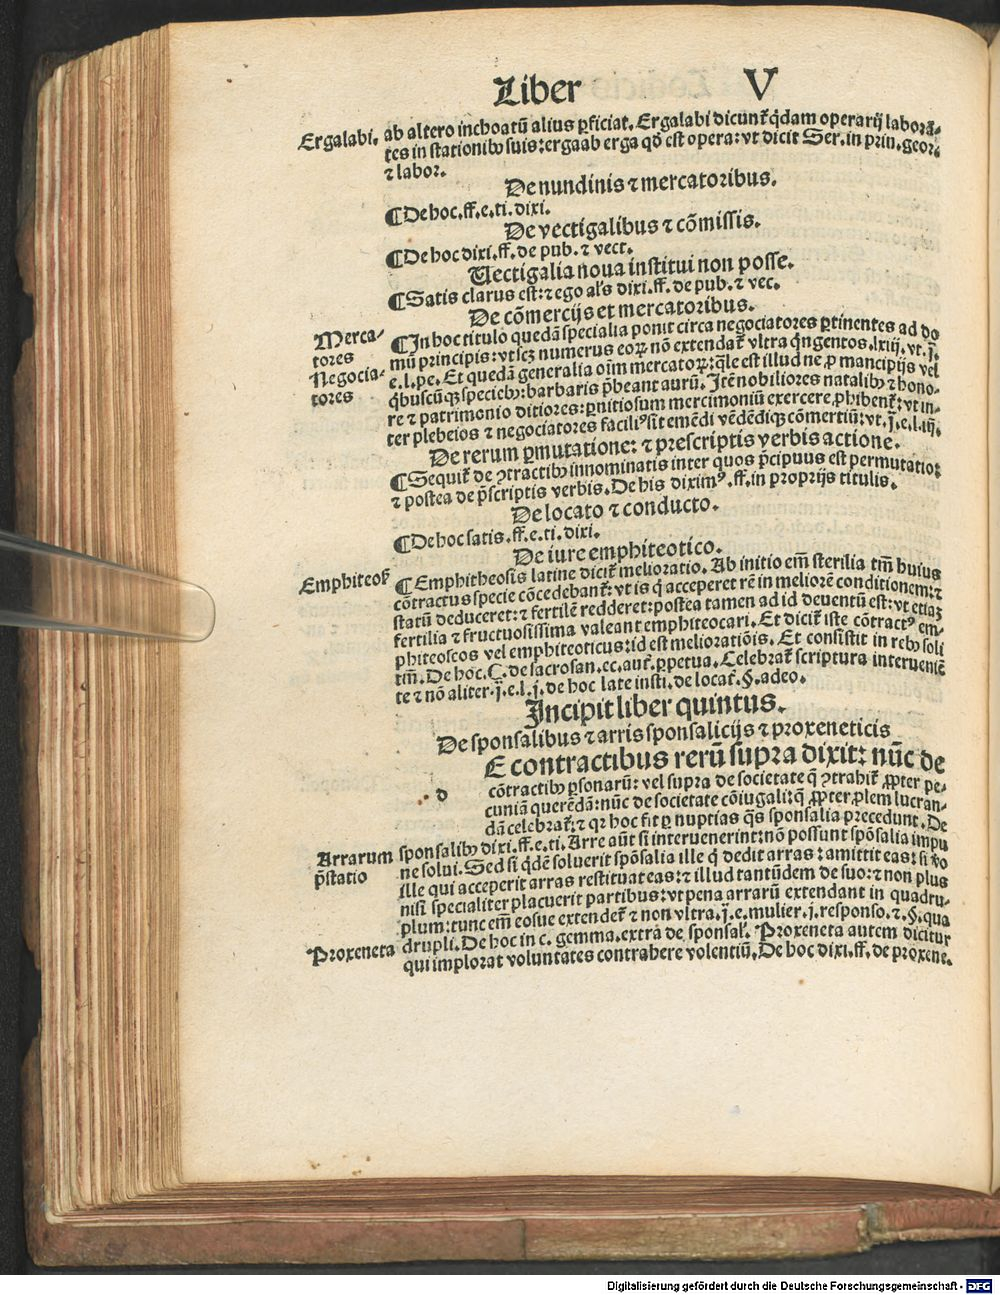 Liber V
Ergalabi. ab altero inchoatū alius ꝑficiat. Ergalabi dicunt̃ q̇dam operarij laborā-
tes in stationibꝰ suis: ergaab erga qḋ est opera: vt dicit Ser. in prin. geor.
⁊ labor.
De nundinis ⁊ mercatoribus.
¶ De hoc .ff. e. ti. dixi.
De vectigalibus ⁊ cōmissis.
¶ De hoc dixi .ff. de pub. ⁊ vect.
Uectigalia noua institui non posse.
¶ Satis clarus est: ⁊ ego als̄ dixi .ff. de pub. ⁊ vec.
De cōmercijs et mercatoribus.
Merca-
tores
Negocia-
tores
¶ In hoc titulo quedā specialia ponit circa negociatores ꝑtinentes ad do
mū principis: vt scꝫ numerus eoꝝ nō extendat̃ vltra qngentos .lxiij. vt .j.
e. l. pe. Et quedā generalia oīm mercatoꝝ: qle est illud ne ꝓ mancipijs vel
qbuscūqꝫ speciebꝰ: barbaris p̄beant aurū. Itē nobiliores natalibꝰ ⁊ hono-
re ⁊ patrimonio ditiores: ꝑnitiosum mercimoniū exercere ꝓhibent̃: vt in-
ter plebeios ⁊ negociatores faciliꝰ sit emēdi vēdēdiqꝫ cōmertiū: vt .j. e. l. iij.
De rerum ꝑmutatione: ⁊ prescriptis verbis actione.
¶ Sequit̃ de ꝯtractibꝰ innominatis inter quos p̄cipuus est permutatio:
⁊ postea de p̄scriptis verbis. De his diximꝰ .ff. in proprijs titulis.
De locato ⁊ conducto.
¶ De hoc satis .ff. e. ti. dixi.
De iure emphiteotico.
Emphiteos̃
¶ Emphitheosis latine dicit̃ melioratio. Ab initio em̄ sterilia tm̄ huius
cōtractus specie cōcedebant̃: vt is q acceperet rē in meliorē conditionem: ⁊
statū deduceret: ⁊ fertilē redderet: postea tamen ad id deuentū est: vt etiaꝫ
fertilia ⁊ fructuosissima valeant emphiteocari. Et dicit̃ iste cōtractꝰ em-
phiteoseos vel emphiteoticus: id est meliorationis. Et consistit in rebꝰ soli
tm̄. De hoc. C. de sacrosan. ec. aut̃. ꝑpetua. Celebrat̃ scriptura interueniē
te ⁊ nō aliter .j. e. l. j. de hoc late insti. de locat̃. §. adeo.
Incipit liber quintus.
De sponsalibus ⁊ arris sponsalicijs ⁊ proxeneticis
d E contractibus rerū supra dixit: nūc de
cōtractibꝰ ꝑsonarū: vel supra de societate q̄ ꝯtrahit̃ ꝓpter pe-
cuniā querēdā: nūc de societate cōiugali: q̄ ꝓpter ꝓlem lucran-
dā celebrat̃: ⁊ qꝛ hoc fit ꝑ nuptias q̄s sponsalia precedunt. De
Arrarum
p̄statio
sponsalibꝰ dixi .ff. e. ti. Arre aūt si interuenerint: nō possunt spōsalia impu
ne solui. Sed si q̇dē soluerit spōsalia ille q̇ dedit arras: amittit eas: si v̊o
ille qui acceperit arras restituat eas: ⁊ illud tantūdem de suo: ⁊ non plus
nisi specialiter placuerit partibus: vt pena arrarū extendant in quadru-
plum: tunc em̄ eousue extendet̃ ⁊ non vltra .j. e. mulier. j. responso. ⁊ .§. qua
Proxeneta drupli. De hoc in c. gemma. extra de sponsal̃. Proxeneta autem dicitur
qui implorat voluntates contrahere volentiū. De hoc dixi .ff. de proxene.
Digitalisierung gefördert durch die Deutsche Forschungsgemeinschaft - DFG